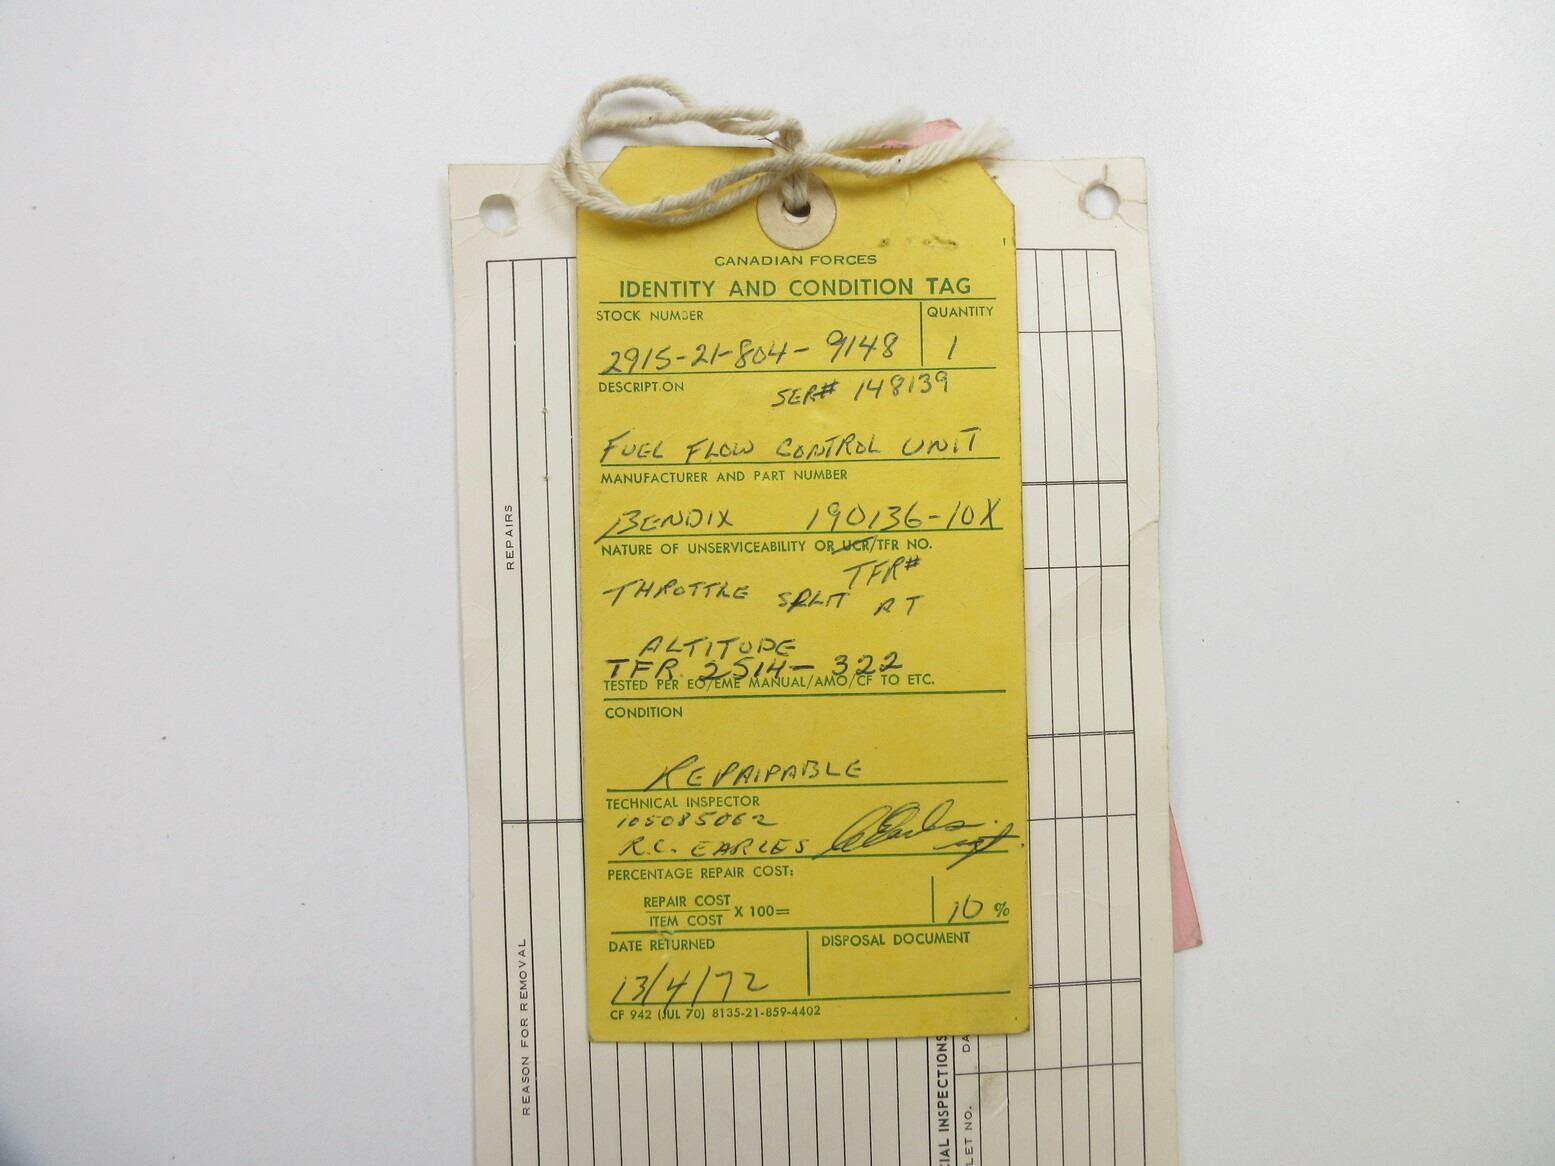 CANADIAN FORCES
IDENTITY AND CONDITION TAG
STOCK NUMBER QUANTITY
2915-21-804-9148 1
DESCRIPTION
SER# 148139
FUEL FLOW CONTROL UNIT
MANUFACTURER AND PART NUMBER
BENDIX 190136-10X
NATURE OF UNSERVICEABILITY OR UCR/TFR NO.
TFR#
THROTTLE SPLIT AT
ALTITUDE
TFR 2514-322
TESTED PER EO/EME MANUAL/AMO/CF TO ETC.
CONDITION
REPAIRABLE
TECHNICAL INSPECTOR
105085062
R.C. EARLES
PERCENTAGE REPAIR COST:
REPAIR COST
ITEM COST X 100= 10 %
DATE RETURNED DISPOSAL DOCUMENT
13/4/72
CF 942 (JUL 70) 8135-21-859-4402
REPAIRS
REASON FOR REMOVAL
IAL INSPECTIONS
DA
LET NO.